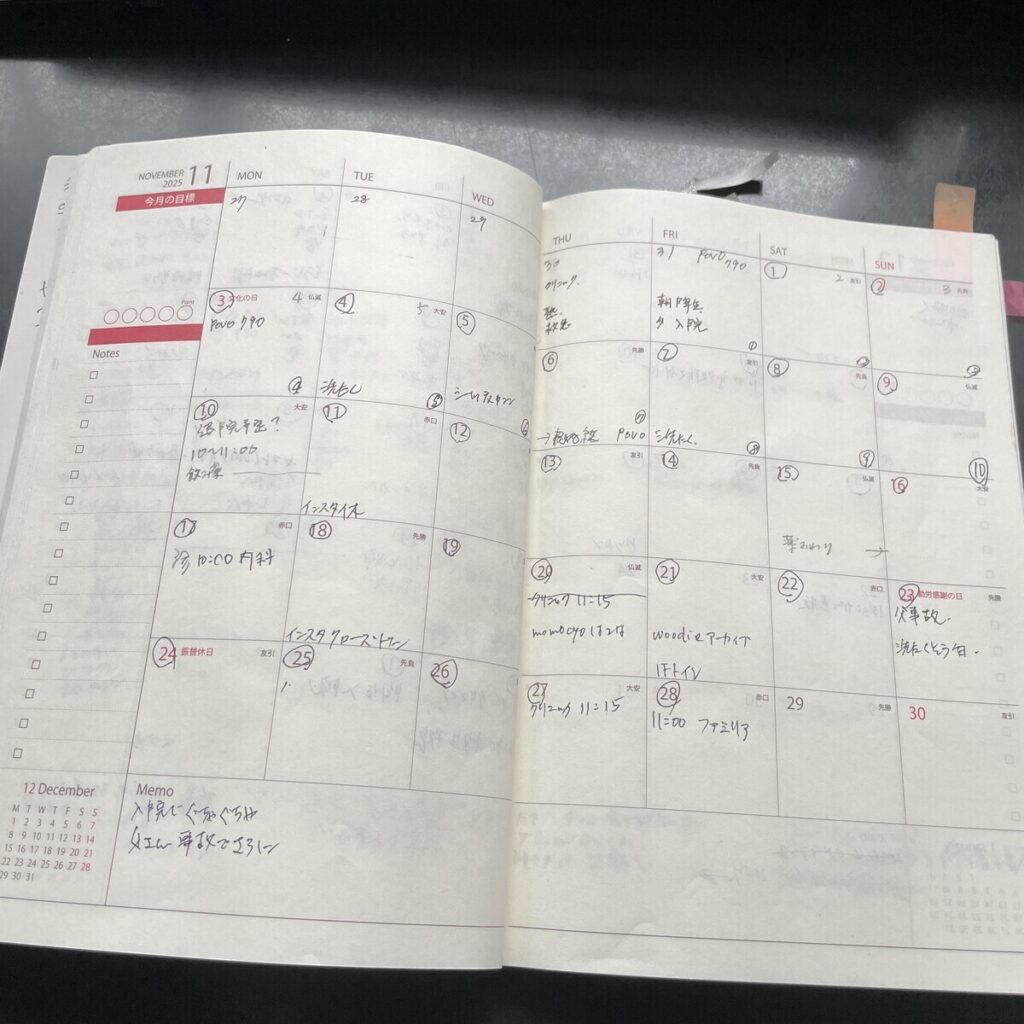 NOVEMBER 11
2025
今月の目標
MON
TUE
WED
THU
FRI
SAT
SUN
27
28
29
30
クリニック
31 povo 790
朝
夕 入院
1
2 友引
2
3 先負
Point
Notes
3 文化の日
4 仏滅
povo 790
4
4
5 大安
洗たく
5
5
6
6 先勝
povo
7
7 友引
1
洗たく
8
8 先負
9
9 仏滅
10
10 大安
退院予定?
10~11:00
11 赤口
インスタ休
12
13 友引
14 先負
15 仏滅
薬おわり →
16 大安
17 赤口
診 10:00 内科
18 先勝
インスタ クローズ
19
20 仏滅
クリニック 11:15
momocyo はつな
21 大安
woodie アーカイブ
1Fトイレ
22 赤口
23 勤労感謝の日 先勝
父事故
24 振替休日 友引
25 先負
26
27 大安
クリニック 11:15
28 赤口
11:00 ファミリア
29 先勝
30 友引
12 December
M T W T F S S
1 2 3 4 5 6 7
8 9 10 11 12 13 14
15 16 17 18 19 20 21
22 23 24 25 26 27 28
29 30 31
Memo
入院でぐちゃぐちゃ
父さん 事故でさらに